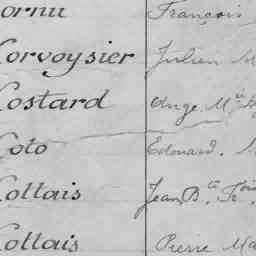 ornu François
Corvoysier Julien M
Costard Ange Mie
Coto Edouard.
Collais Jean Bte Fr.ois
Collais Pierre Ma